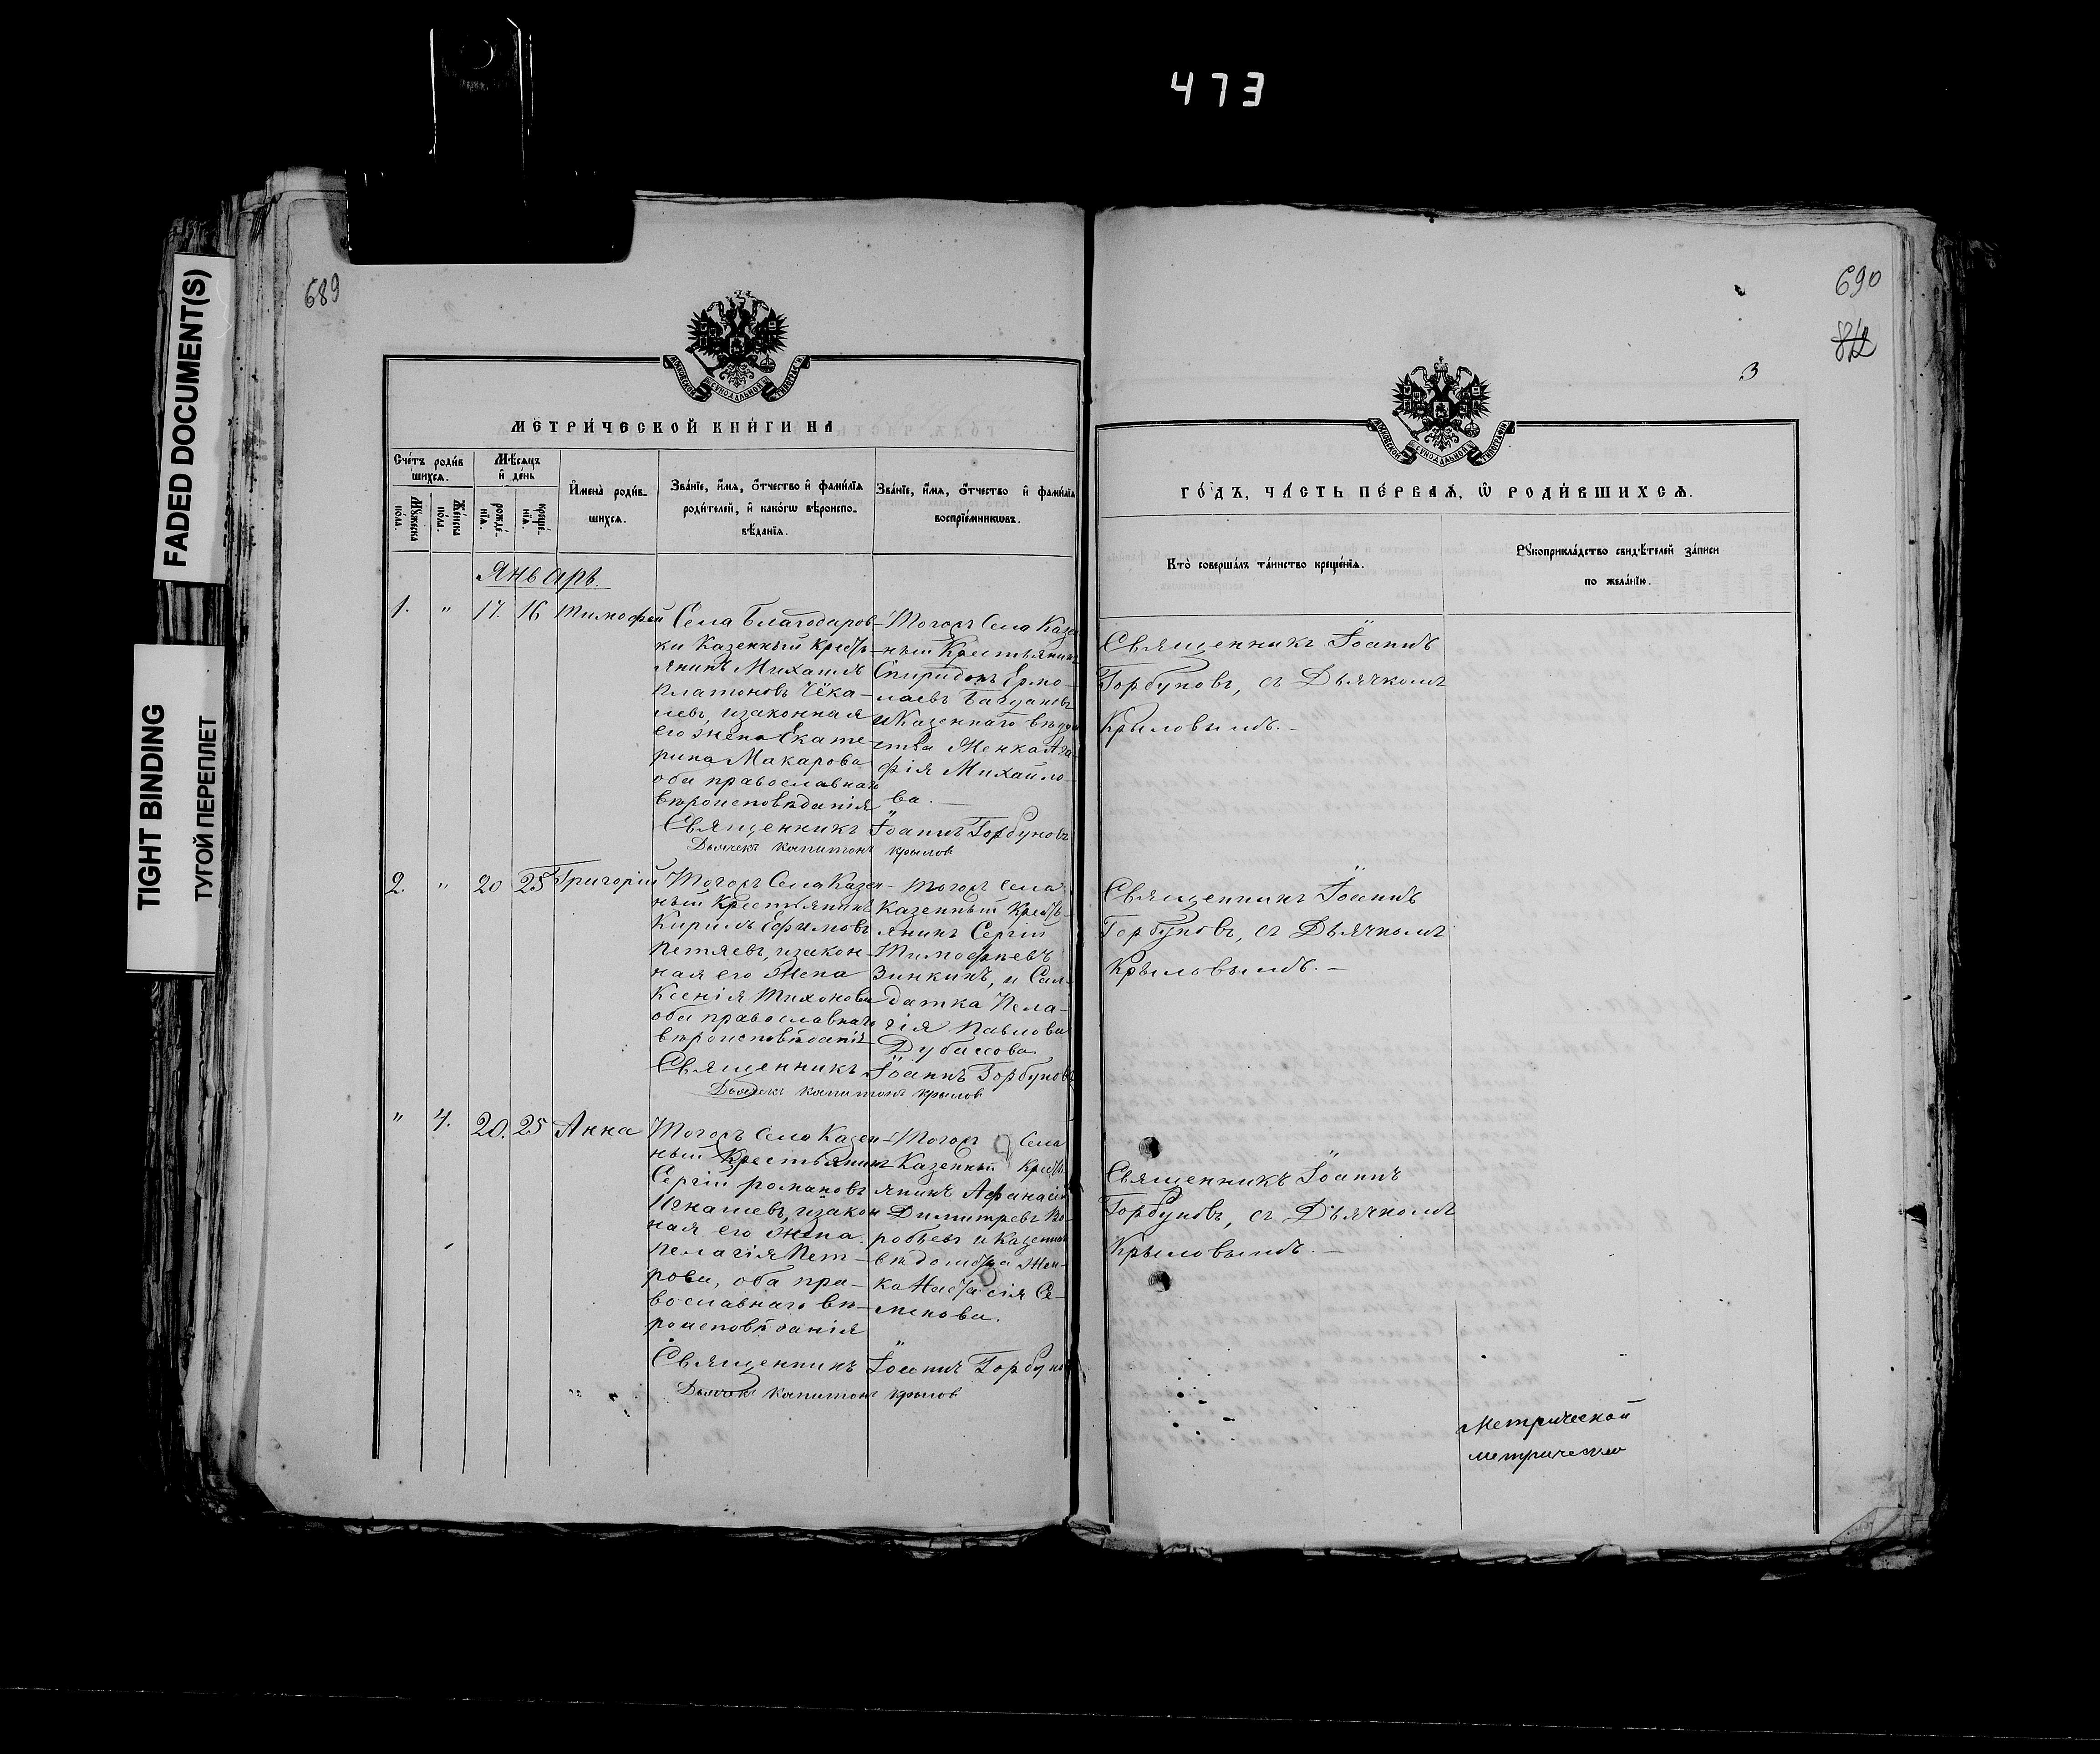 473
FADED DOCUMENT(S)
TIGHT BINDING
ТУГОЙ ПЕРЕПЛЕТ
689
МЕТРИ́ЧЕСКОЙ КНИ́ГИ НА
Сче́тъ роди́в
шихсѧ.
Мѣ́сѧцъ
и҆ де́нь
Мꙋ́жеска
по́ла.
Же́нска
по́ла.
рожде́-
нїѧ.
креще́-
нїѧ.
И҆мена̀ роди́в-
шихсѧ.
Зва́нїе, и҆́мѧ, ѻ҆́тчество и҆ фами́лїѧ
роди́телей, и҆ како́гѡ вѣроиспо-
вѣ́данїѧ.
Зва́нїе, и҆́мѧ, ѻ҆́тчество и҆ фами́лїѧ
воспрїе́мникѡвъ.
Январь.
1. " 17. 16 Тимофей
Села Благодаров-
ки Казенный Кресть-
янинъ Михаилъ
Платоновъ Чека-
левъ, изаконная
его жена Екате-
рина Макарова
оба православнаго
вѣроисповѣданія
Тогожъ Села Казен
ный Крестьянинъ
Спиридонъ Ермо-
лаевъ
и Казеннаго вѣдом
ства Женка Ага-
фія Михайло-
ва.
Священникъ Іоаннъ Горбуновъ
Дьячекъ Капитонъ Крылов
2. " 20 25 Григорій
Тогожъ Села Казен-
ный Крестьянинъ
Кирилъ Ефимовъ
Петяевъ, изакон
ная его жена
Ксенія Тихонова
оба православнаго
вѣроисповѣданія
Тогожъ Села
Казенный Кресть-
янинъ Сергій
Тимофеевъ
Зинкинъ, и Сол-
датка Пела-
гія Павлова
Дубасова
Священникъ Іоаннъ Горбуновъ
Дьячекъ Капитонъ Крылов
" 4. 20. 25 Анна
Тогожъ Села Казен-
ный Крестьянинъ
Сергій Романовъ
Игнашевъ, изакон
ная его жена
Пелагія Пет-
рова, оба пра-
вославнаго вѣ-
роисповѣданія
Тогожъ Села
Казенный Кресть
янинъ Афанасій
Димитревъ Во-
робьевъ и Казеннаго
вѣдомства Жен-
ка Настасія Се-
менова.
Священникъ Іоаннъ Горбунов
Дьячекъ Капитонъ Крылов
690
3
ГО́ДЪ, ЧА́СТЬ ПЕ́РВАѦ, Ѡ҆ РОДИ́ВШИХСѦ.
Кто̀ соверша́лъ та́инство креще́нїѧ.
Рꙋкоприкла́дство свидѣ́телей за́писи
по жела́нїю.
Священникъ Іоаннъ
Горбуновъ, съ Дьячкомъ
Крыловымъ.-
Священникъ Іоаннъ
Горбуновъ, съ Дьячкомъ
Крыловымъ.-
Священникъ Іоаннъ
Горбуновъ, съ Дьячкомъ
Крыловымъ.-
Метрической